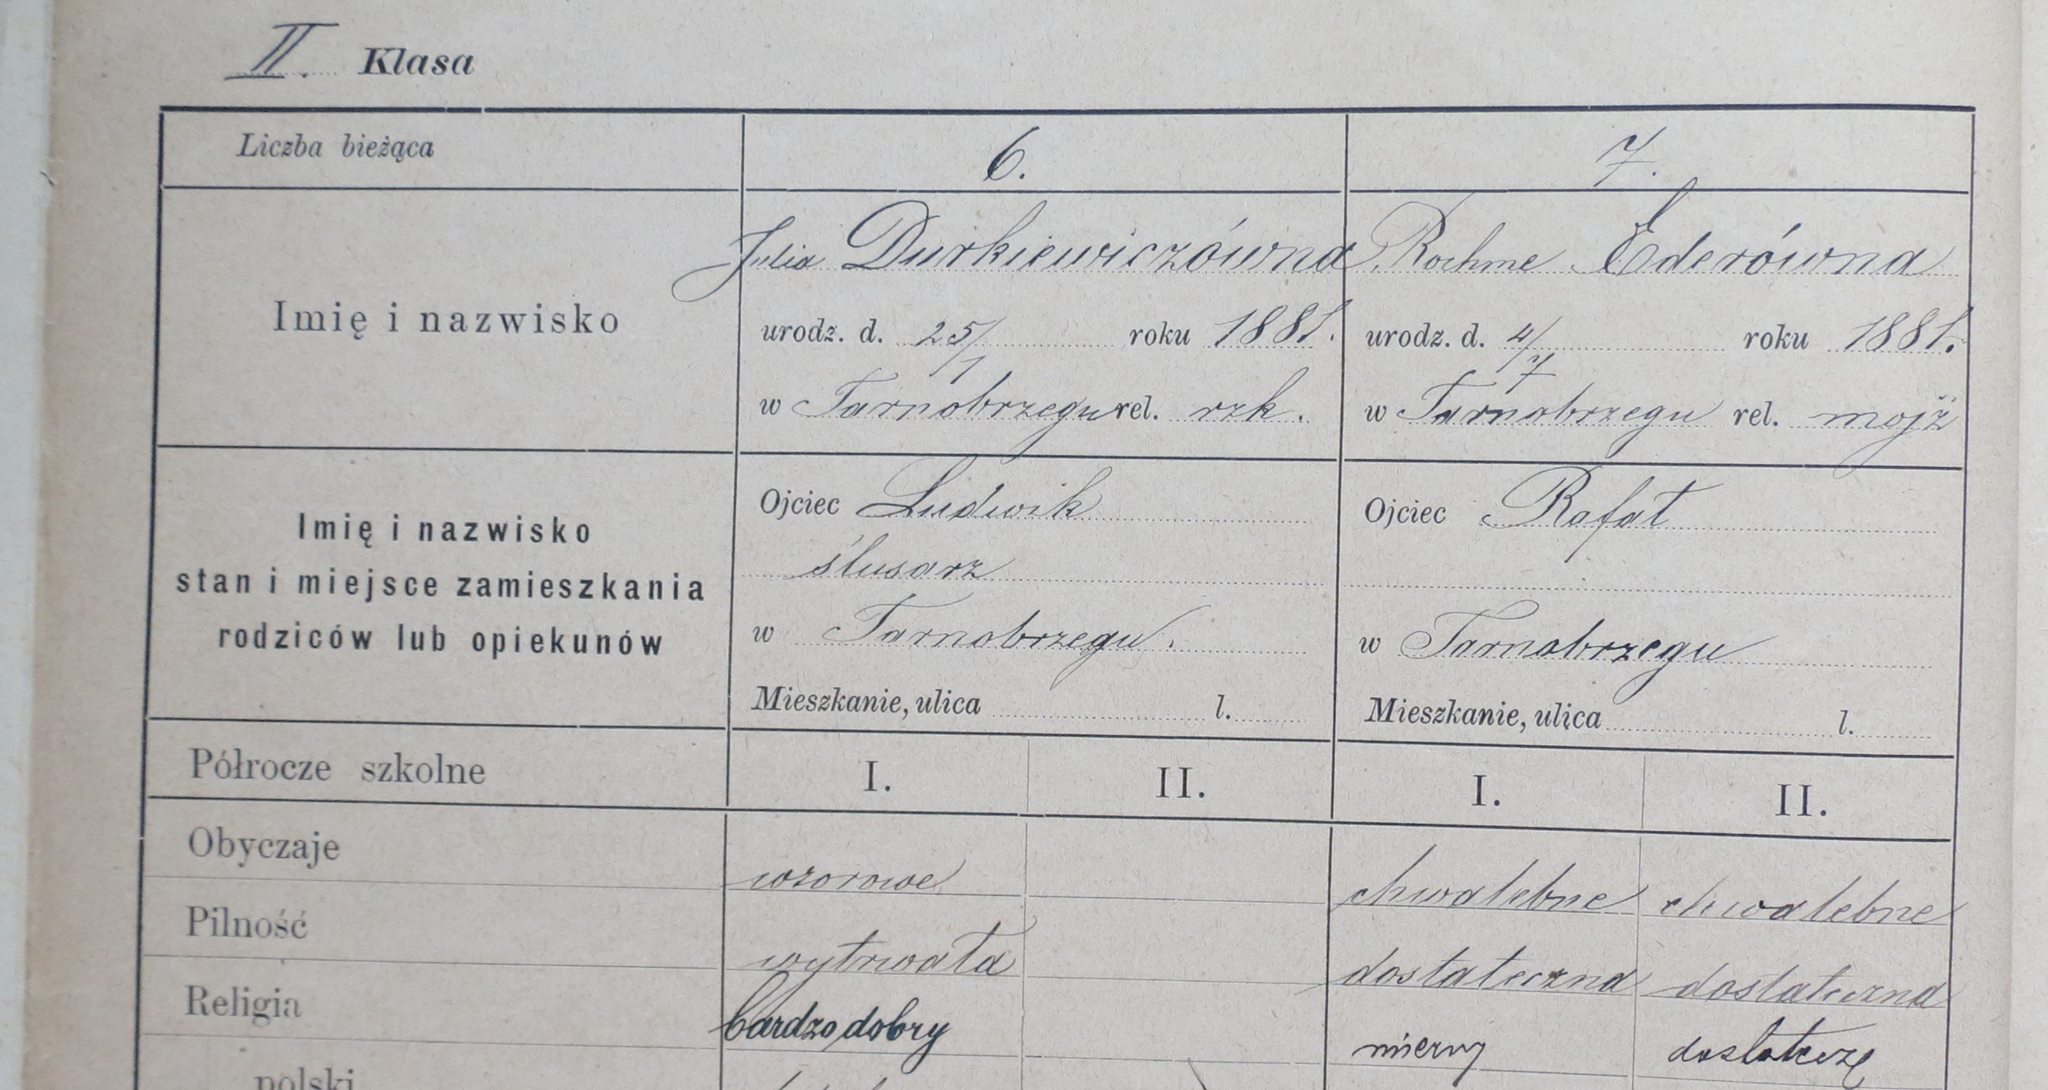 II. Klasa
Liczba bieżąca 6. 7.
Imię i nazwisko
Julia Durkiewiczówna
urodz. d. 25/1 roku 1881.
w Tarnobrzegu rel. rzk.
Rochme Ederówna
urodz. d. 4/7 roku 1881.
w Tarnobrzegu rel. mojż
Imię i nazwisko
stan i miejsce zamieszkania
rodziców lub opiekunów
Ojciec Ludwik
ślusarz
w Tarnobrzegu.
Mieszkanie, ulica l.
Ojciec Rafał
w Tarnobrzegu
Mieszkanie, ulica l.
Półrocze szkolne I. II. I. II.
Obyczaje wzorowe chwalebne chwalebne
Pilność wytrwała dostateczna dostateczna
Religia bardzo dobry mierny dostateczę
polski